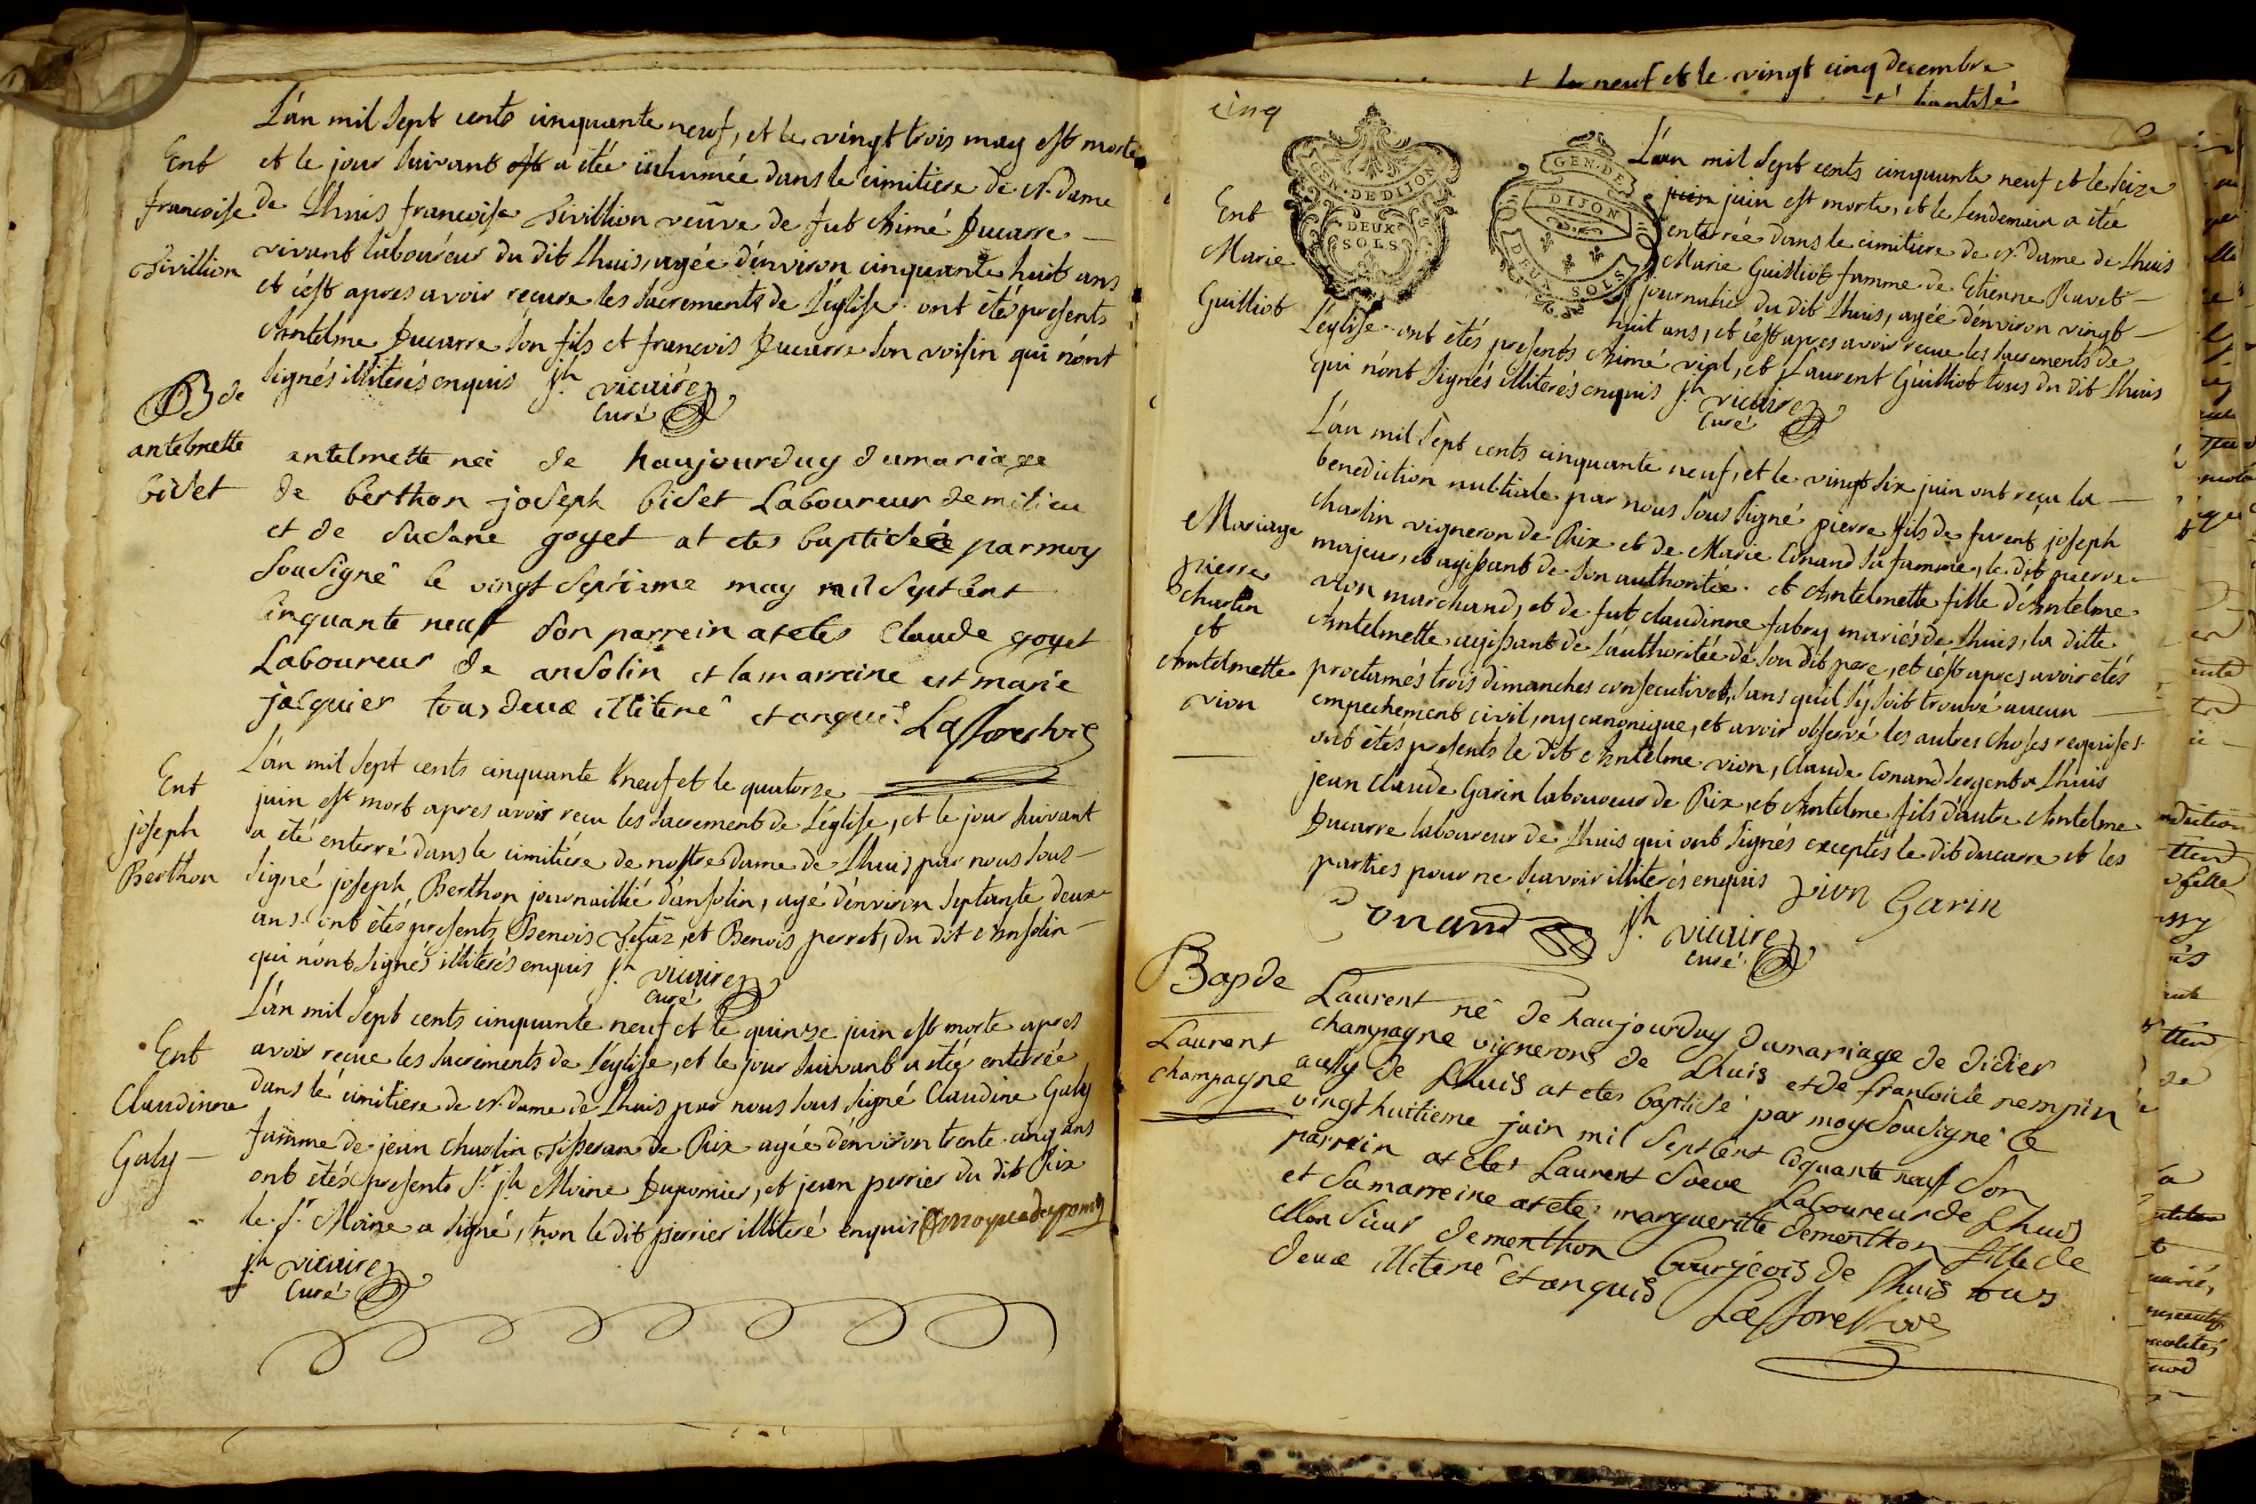 L'an mil sept cents cinquante neuf, et le vingt trois may est morte
et le jour suivant est a étée inhumée dans le cimitiere de N. dame
de Lhuis francoise Sivillion veûve de fut Aimé Ducarre
vivant laboureur du dit Lhuis, agée d'environ cinquante huit ans
et c'est apres avoir reçue les sacrements de L'église. ont étés presents
Antelme Ducarre son fils et francois Ducarre son voisin qui n'ont
signés illiterés enquis jh. vicaire
Curé
Ent
francoise
Sivillion
B de
antelmette
bidet
antelmette neé de haujourduy dumariage
de berthon joseph bidet Laboureur de milieu
et de Susane goyet at etes baptiseé par moy
Sousigné le vingt septieme may mil sept Cent
Cinquante neuf Son parrein at etes Claude goyet
Laboureur de ansolin et la marreine est marie
jacquier tous deux illiteré et anquis
Ent
joseph
Berthon
L'an mil sept cents cinquante neuf et le quatorse
juin est mort apres avoir reçu les sacrement de L'église, et le jour suivant
a été enterré dans le cimitiére de nostre dame de Lhuis par nous sous
signé joseph Berthon journaillié d'ansolin, agé d'environ septante deux
ans. ont étés presents Benois et Benois perret, du dit Ansolin
qui n'ont signés illiterés enquis jh. vicaire
curé
Ent
Claudinne
Galy
L'an mil sept cents cinquante neuf et le quinze juin est morte apres
avoir reçue les sacrements de L'église, et le jour suivant a étée enterrée
dans le cimitiere de N. dame de Lhuis par nous sous signé Claudine Galy
famme de jean Charlin Tisseran de Rix agée d'environ trente cinq ans
ont étés presents Sr. jh Moine Dupomier, et jean perrier du dit Rix
le Sr Moine a signé, non le dit perrier illiteré enquis
jh vicaire
Curé
cinq
GEN. DE DIJON
DEUX
SOLS
GEN. DE
DIJON
DEUX SOLS
Ent
Marie
Guilliot
L'an mil sept cents cinquante neuf et le seize
juin juin est morte, et le lendemain a étée
enterrée dans le cimitiere de N. dame de Lhuis
Marie Guilliot famme de Etienne Ravet
journalier du dit Lhuis, agée d'environ vingt
huit ans, et c'est apres avoir reçue les sacrements de
L'église. ont étés presents Aimé vial, et Laurent Guilliot tous du dit Lhuis
qui n'ont signés illiterés enquis jh. vicaire
Curé
Mariage
pierre
Charlin
et
Antelmette
vion
L'an mil sept cents cinquante neuf, et le vingt six juin ont reçu la
benediction nubtiale par nous sous signé pierre fils de furent joseph
Charlin vigneron de Rix et de Marie Conand sa famme, le dit pierre
majeur, et agissant de son authoritée. et Antelmette fille d'Antelme
vion marchand, et de fut claudinne fabry mariés de Lhuis, la ditte
Antelmette agissant de L'authoritée de son dit pere, et c'est apres avoir étés
proclamés trois dimanches consecutives, sans quil s'y soit trouvé aucun
empechement civil, ny canonique, et avoir observé les autres choses requises.
ont étés presents le dit Antelme vion, Claude Conand sergent a Lhuis
jean Claude Garin laboureur de Rix, et Antelme fils d'autre Antelme
Ducarre laboureur de Lhuis qui ont signés exceptes le dit ducarre et les
parties pour ne scavoir illiterés enquis vion Garin
Conand jh. vicaire
curé
Bap de
Laurent
champagne
Laurent né de haujourduy dumariage de didier
champagne vignerons de Lhuis et de francoise nempin
aussy de Lhuis at etes baptisé par moy Sousigné Ce
vingt huitieme juin mil Sept Cent Cinquante neuf Son
parrein at etes Laurent Soeve Laboureur de Lhuis
et Sa marreine at ete margueritte dementhon fille de
Mon Sieur dementhon Bourgeois de Lhuis tous
deux illiteré et anquis
le neuf et le vingt cinq decembre